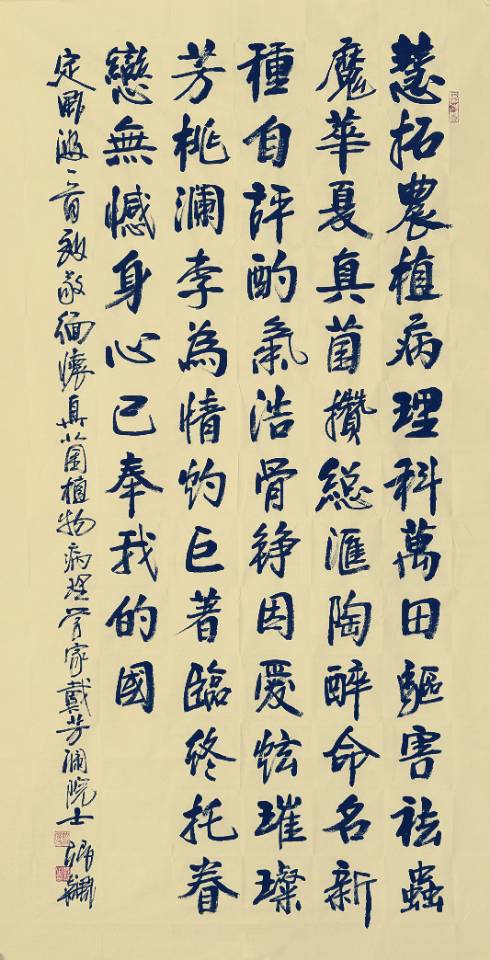 慧拓農植病理科萬田驅害祛蟲
魔華夏真菌攢總滙陶醉命名新
種自評酌氣浩骨錚因愛炫璀璨
芳桃瀾李為情灼巨著臨終托眷
戀無憾身心已奉我的國
定風波一首致敬緬懷真菌植物病理学家戴芳瀾院士